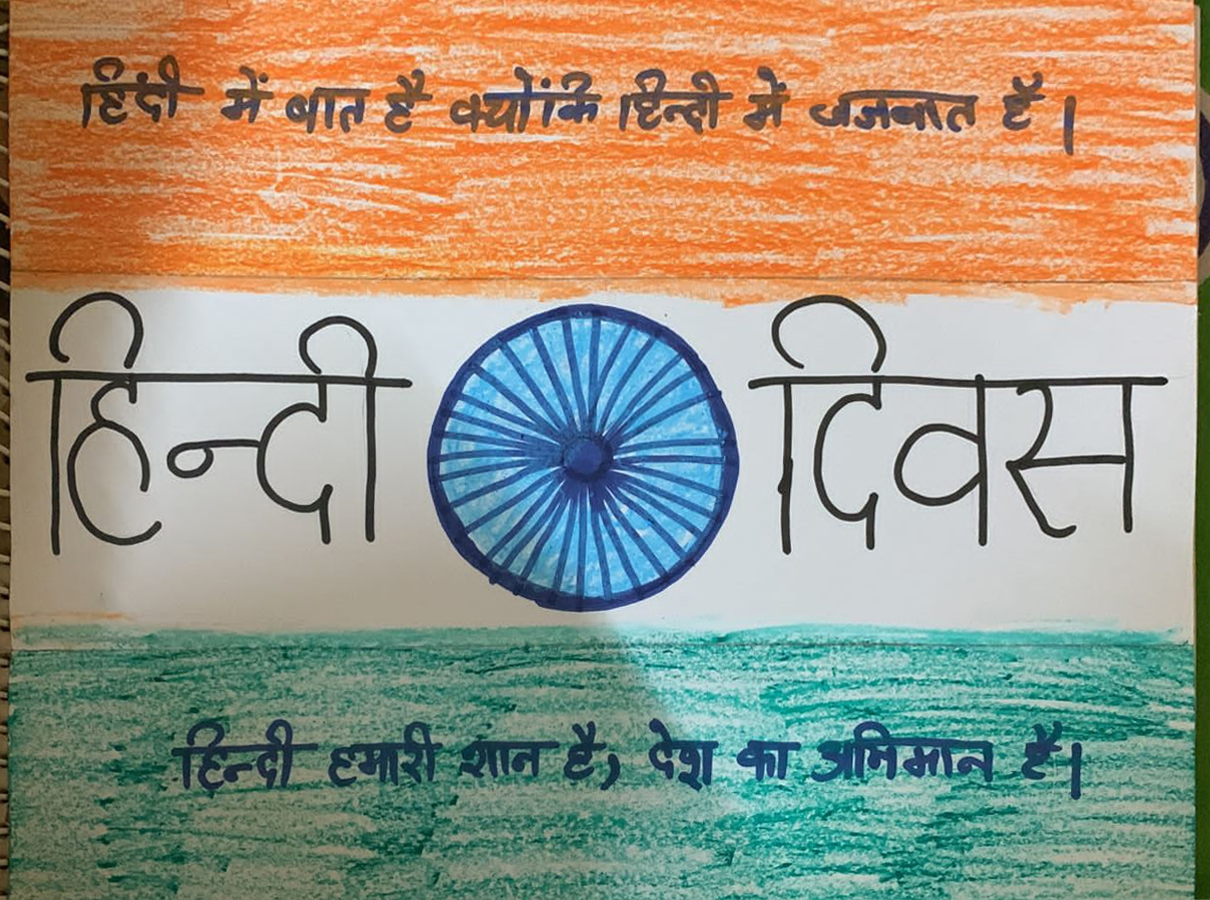 हिंदी में बात है क्योंकि हिन्दी में जजबात है।
हिन्दी दिवस
हिन्दी हमारी शान है, देश का अभिमान है।